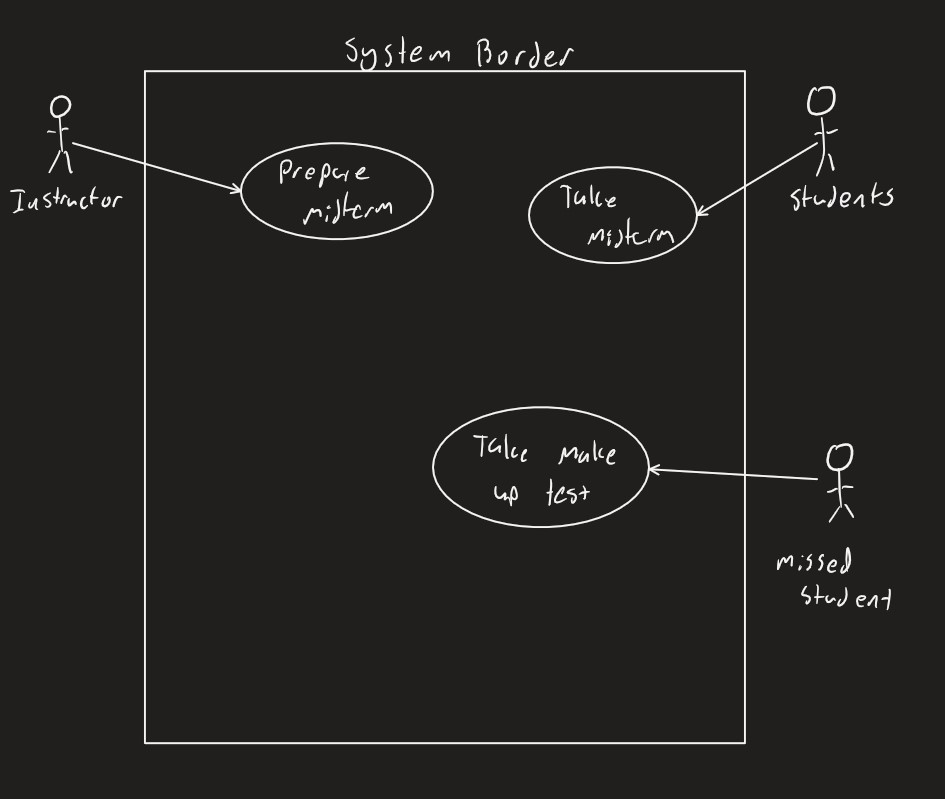 System Border
Instructor
Prepare
midterm
Take
midterm
Students
Take make
up test
missed
student